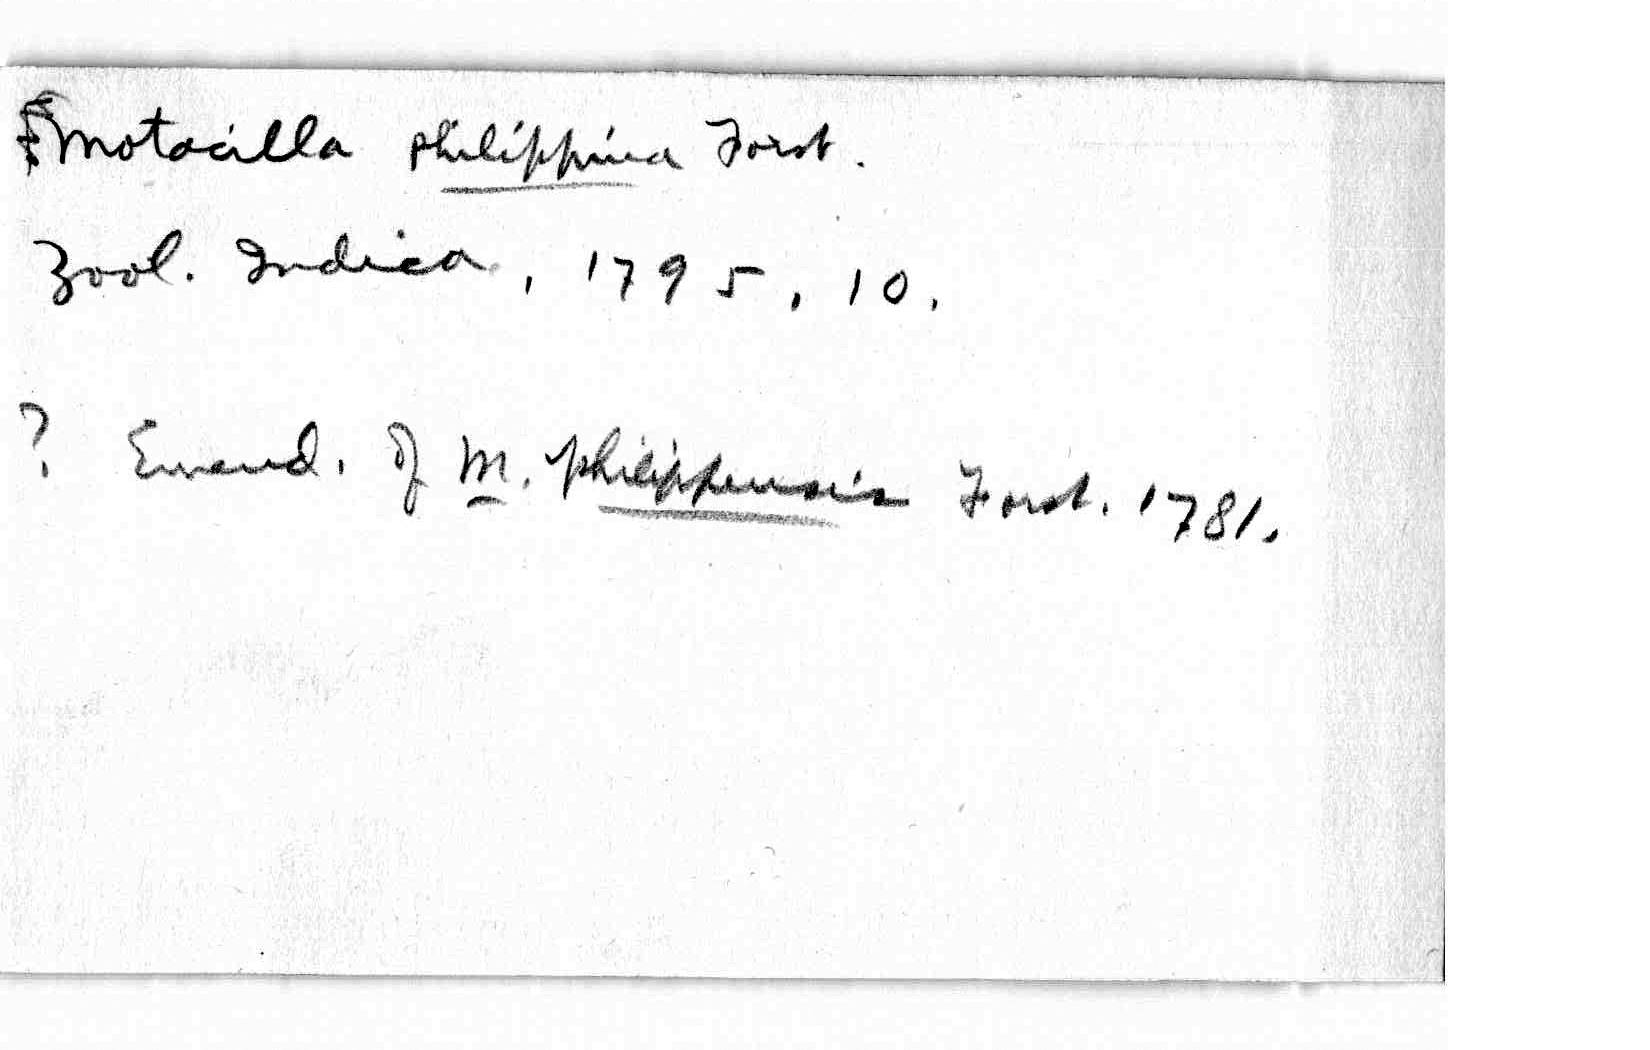 Motacilla philippina Forst.
Zool. Indica, 1795, 10.
? Emend. of M. philippensis Forst. 1781.